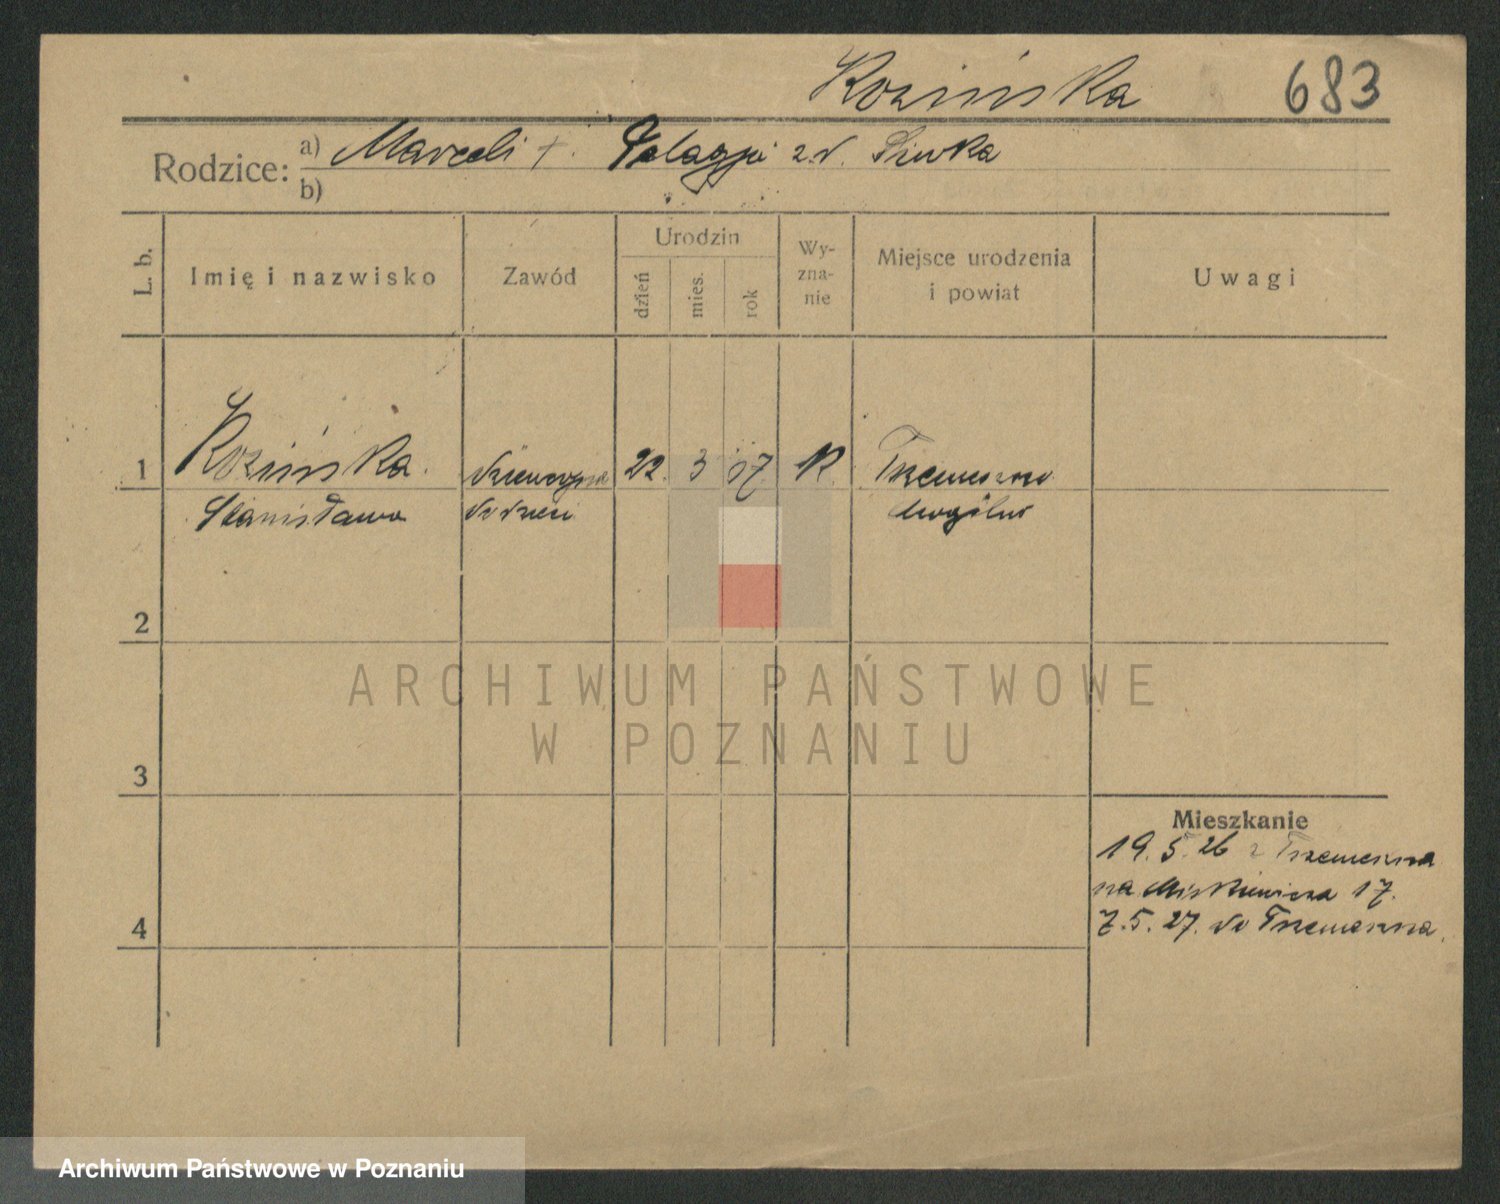 Kozińska 683
Rodzice: a) Marceli +. Pelagja z d. Siwka
b)
L. b. Imię i nazwisko Zawód Urodzin dzień mies. rok Wy-zna-nie Miejsce urodzenia i powiat Uwagi
1 Kozińska dziewczyna 22. 3 17 K. Trzemeszno
Stanisława do dzieci Mogilno
2
3
4
Mieszkanie
19.5.26 z Trzemeszna
na Mickiewicza 17.
7.5.27. do Trzemeszna.
ARCHIWUM PAŃSTWOWE
W POZNANIU
Archiwum Państwowe w Poznaniu